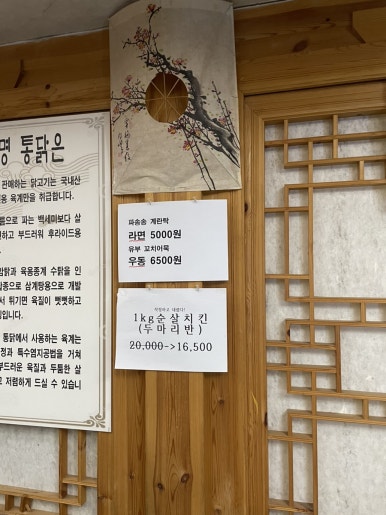 명 통닭은
판매하는 닭고기는 국내산
용 육계만을 취급합니다.
름으로 파는 백세미보다 살
하고 부드러워 후라이드용
암탉과 육용종계 수탉을 인
합종으로 삼계탕용으로 개발
서 튀기면 육질이 뻣뻣하고
입니다.
통닭에서 사용하는 육계는
정과 특수염지공법을 거쳐
부드러운 육질과 두툼한 살
고 저렴하게 드실 수 있습니
파송송 계란탁
라면 5000원
유부 꼬치어묵
우동 6500원
1kg순살치킨
(두마리반)
20,000->16,500